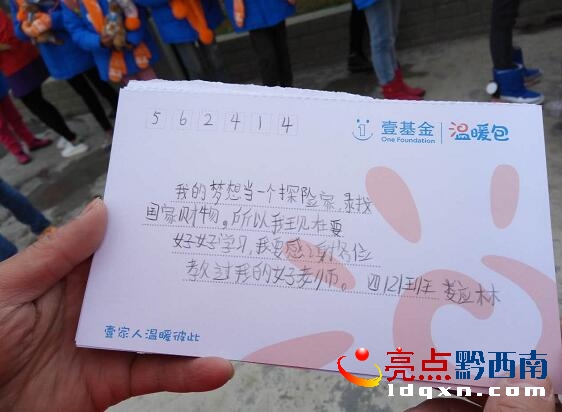 562414
壹基金
One Foundation
温暖包
我的梦想当一个探险家,寻找
国家财物。所以我现在要
好好学习,我要感谢各位
教过我的好老师。四(2)班 林
壹家人温暖彼此
亮点黔西南
ldqxn.com